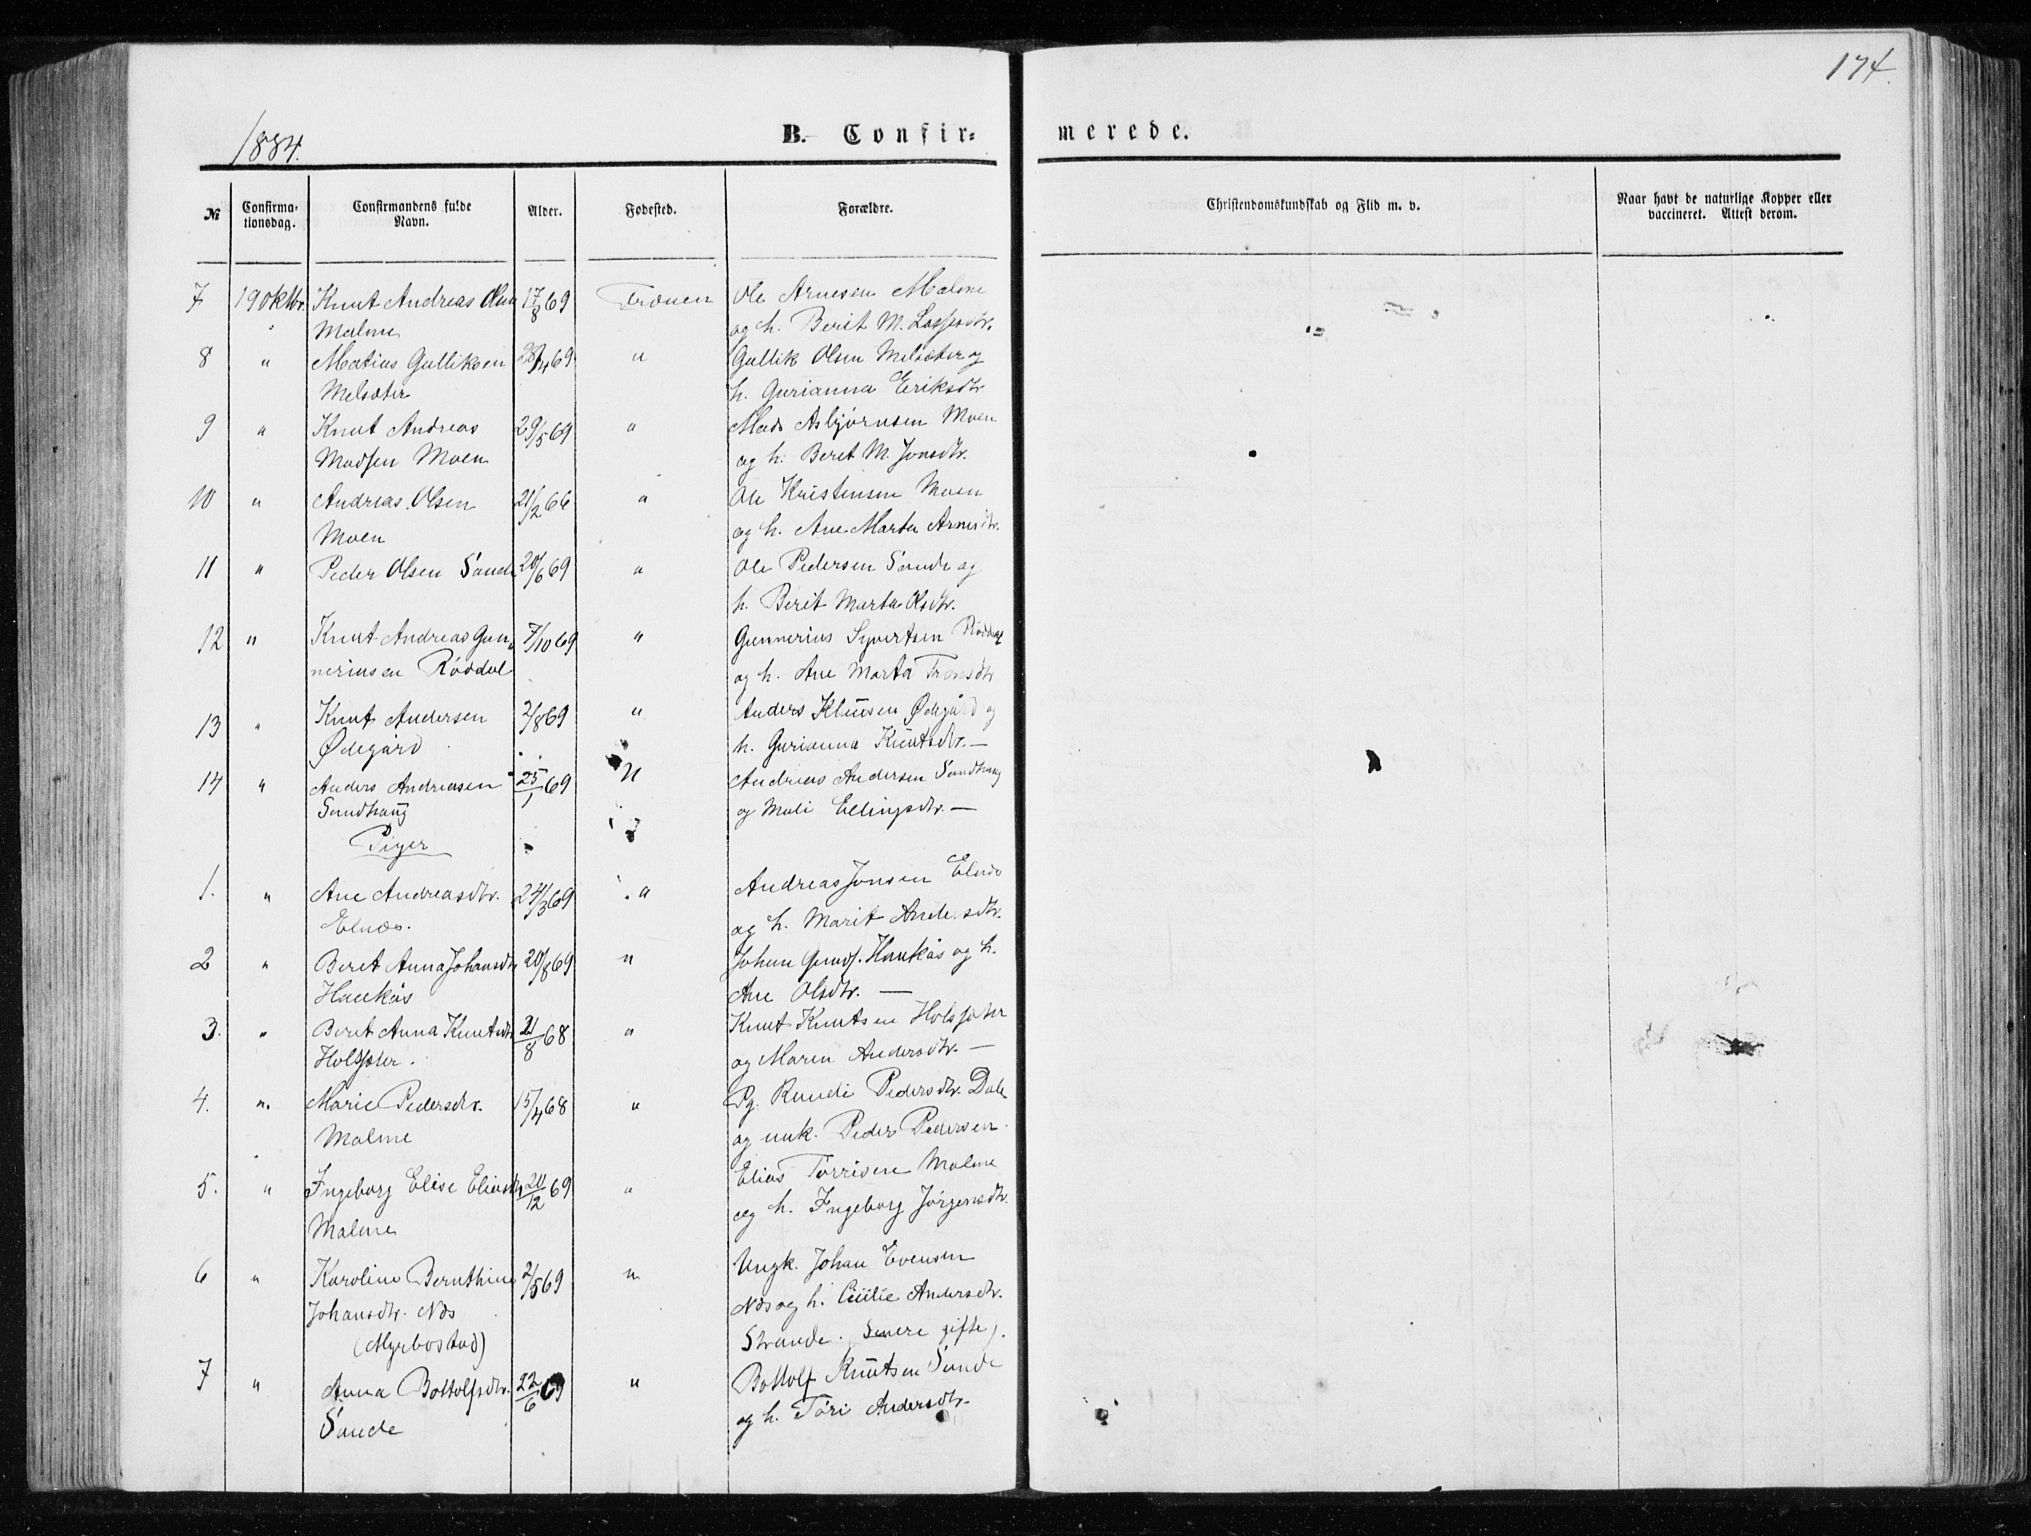 174.
1884.
B. Confir=
merede.
№
Confirma-
tionsdag.
Confirmandens fulde
Navn.
Alder.
Fødested.
Forældre.
Christendomskundskab og Flid m. v.
Naar havt de naturlige Kopper eller
vaccineret. Attest derom.
7 19 Oktbr. Knut Andreas Olsen 17/8 69 Frænen Ole Arnesen Malme
" Malme og h. Berit M. Lassesdtr.
8 " Matias Gulliksen 28/4 69 " Gullik Olsen Melsæter og
Melsæter h. Gurianna Eriksdtr
9 " Knut Andreas 29/5 69 " Mads Asbjørnsen Moen
Madsen Moen og h. Beret M. Jonsdtr.
10 " Andreas Olsen 21/2 66 " Ole Kristensen Moen
Moen og h. Ane Marta Arnesdtr.
11 " Peder Olsen Sande 20/6 69 " Ole Pedersen Sande og
h. Berit Marta Olsdtr.
12 " Knut Andreas Gun= 7/10 69 " Gunnerius Syvertsen Røddal
neriusen Røddal og h. Ane Marta Tronsdtr
13 " Knut Andersen 2/8 69 " Anders Klausen Ødegård og
Ødegård h. Gurianna Knutsdtr. —
14 " Anders Andreasen 25/1 69 " Andreas Andersen Sandhaug
Sandhaug og Mali Ellingsdtr. —
Piger
1. " Ane Andreasdtr. 24/3 69 " Andreas Jonsen Elnæs
Elnæs. og h. Marit Andersdtr.
2 " Beret Anna Johansdtr 20/8 69 " Johan Gunds. Haukås og h.
Haukås Ane Olsdtr. —
3. " Beret Anna Knutsdtr 21/8 68 " Knut Knutsen Holsæter
Holsæter. og Maren Andersdtr. —
4. " Marie Pedersdtr. 15/4 68 " Pg. Randi Pedersdtr. Dale
Malme og unk. Peder Pedersen.
5. " Ingeborg Elise Eliasdtr 20/12 69 " Elias Torrisen Malme
Malme og h. Ingeborg Jørgensdtr.
6 " Karoline Bernthine 2/5 69 " Ungk. Johan Evensen
Johansdtr. Næs Næs og h. Cecilie Andersdtr.
(Myrbostad) Strande. (Senere gifte).
7 " Anna Bottolfsdtr. 22/6 69 " Bottolf Knutsen Sande
Sande og h. Töri Andersdtr.